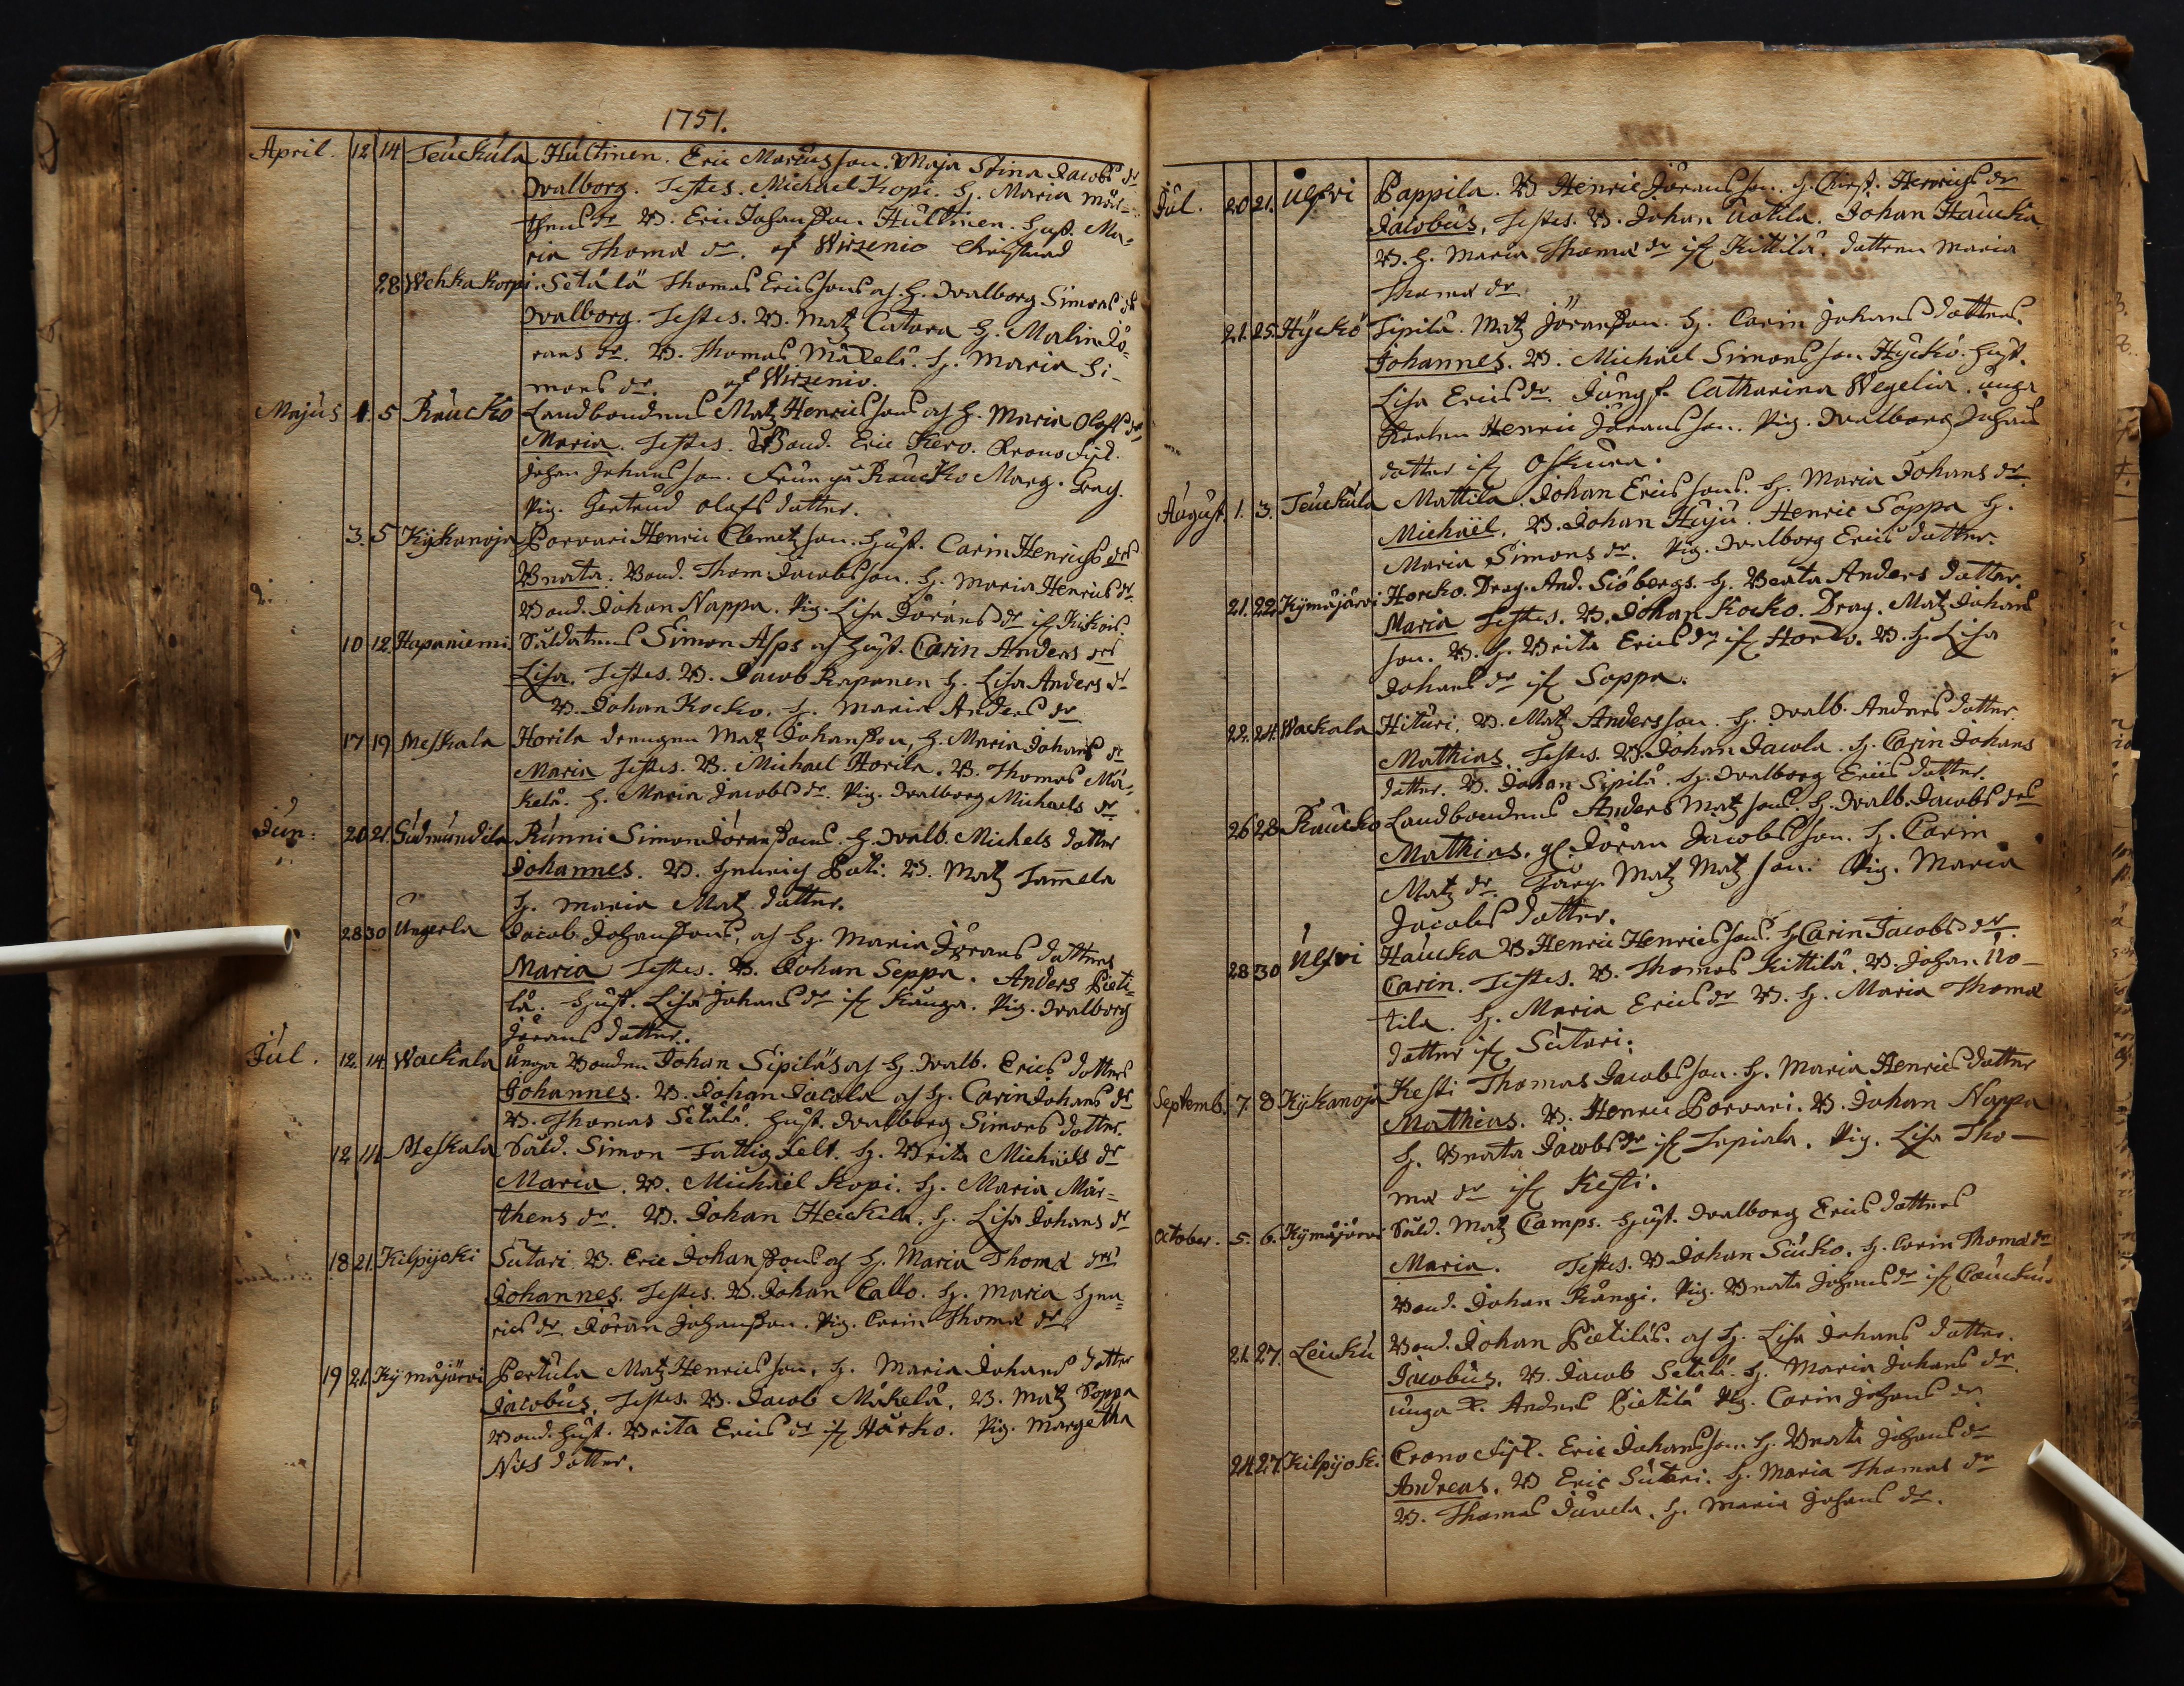 1751.
April. 12 14 Teuckula Hultinen. Eric Marcusson. Maja Stina Jacobs dr
Walborg. Testes. Michael Kopi. H. Maria Mår-
thens dr B. Eric Johansson Hultinen. Hust. Ma-
ria Thomæ dr. af Wirzenio Christnad
28 Wehkakorpi. Setälä Thomas Ericssons och H. Walborg Simons dr
Walborg. Testes. B. Matz Catara H. Malin Jö-
rans dr. B. Thomas Mäkelä. H. Maria Si-
mons dr. af Wirzenio.
Majus 1. 5 Raucko Landbondens Matz Henricssons och H. Maria Olofs dr
Maria. Testes. Bond. Eric Kero. Krono
Johan Johansson. Frun på Raucko Marg. Grag.
Pig. Gertrud Olofs dotter.
3. 5 Kyskanoja Porvari Henric Clemetzson. Hust. Carin Henrics drs
Beata. Bond. Thom Jacobsson. H. Maria Henrics dr
Bond. Johan Nappa. Pig. Lisa Jörans dr if
10 12. Hapaniemi. Soldatens Simon Asps och Hust. Carin Anders drs
Lisa. Testes. B. Jacob Krapanen H. Lisa Anders dr
B. Johan Kocko. H. Maria Anders dr
17 19 Meskala Horila drengen Matz Johansson, H. Maria Johans dr
Maria Testes. B. Michael Horila. B. Thomas Mä-
kelä. H. Maria Jacobs dr. Pig. Walborg Michaels dr
Jun: 20 21. Gudmundila Runni Simon Jöranssons. H. Walb. Michels dotter
Johannes. B. Henrich Pati. B. Matz Tam̅ela
H. Maria Matz dotter.
28 30 Ungerla Jacob Johanssons, och H. Maria Jörans dotters
Maria Testes. B. Johan Seppa. Anders Pieti-
lä. Hust. Lisa Johans dr if Kauga. Pig. Walborg
Jörans dotter.
Jul. 12. 14 Wackala Unga Bonden Johan Sipiläs och H. Walb. Erics dotters
Johannes. B. Johan Jacola och H. Carin Johans dr
B. Thomas Setälä. Hust. Walborg Simons dotter.
12 14 Meskala. Sold. Simon Fattig felt. H. Brita Michiels dr
Maria. B. Michäel Kopi. H. Maria Mår-
thens dr. B. Johan Heickilä. H. Lisa Johans dr
18 21. Kilpijoki Sutari B. Eric Johanssons och H. Maria Thomæ drs
Johannes. Testes. B. Johan Callo. H. Maria Hen-
rics dr Jöran Johansson. Pig. Carin Thomæ dr
19 21. Kymäjärvi Pertula Matz Henricsson, H. Maria Johans dotter
Jacobus. Testes. B. Jacob Mäkelä. B. Matz Soppa
Bond. Hust. Brita Erics dr if Horko. Pig. Margetha
Nils dotter.
Jul. 20 21. Ulfvi Pappila. B Henric Jöransson. H. Christ. Henrichs dr
Jacobus, Testes. B. Johan Uotila. Johan Haucka
B. H. Maria Thomæ dr if Kittilä. dottren Maria
Thomæ dr.
21. 25. Hyckö Sipilä. Matz Jöransson. H. Carin Johans dotters.
Johannes. B. Michäel Simonsson Hyckö. Hust.
Lisa Erics dr. Jungf. Catharina Wegelia. unga
Karlen Henric Jöransson. Pig. Walborg Johans
dotter if
August. 1. 3. Teuckula Mattila Johan Ericssons. H. Maria Johans dr
Michäel. B. Johan Huju. Henric Soppa H.
Maria Simons dr. Pig. Walborg Erics dotter.
21. 22 Kymäjärvi Horcko. Drag. And. Siöbergs. H. Beata Anders dotter.
Maria Testes. B. Johan Kocko. Drag. Matz Johans
son. B. H. Brita Erics dr if Horko. B. H. Lisa
Johans dr if Soppa.
22. 24. Wackala Hituri. B. Matz Andersson. H. Walb. Anders dotter.
Mathias. Testes. B. Johan Jacola. H. Carin Johans
dotter. B. Johan Sipilä. H. Walborg Erics dotter.
26 28 Raucko Landbondens Anders Matzsons. H. Walb. Jacobs drs
Mathias. Jöran Jacobsson. H. Carin
Matz dr. Matz Matzson. Pig. Maria
Jacobs dotter.
28 30 Ulfvi Haucka B Henric Henricssons. H Carin Jacobs dr
Carin. Testes. B. Thomas Kittilä. B. Johan Uo-
tila. H. Maria Erics dr B. H. Maria Thomæ
dotter if Sutari.
Septemb. 7. 8 Kyskanoja Kesti Thomas Jacobsson. H. Maria Henrics dotter
Mathias. B. Henric Porvari. B. Johan Nappa
H. Beata Jacobs dr if Sepiala. Pig. Lisa Tho-
mæ dr if Kesti.
October. 5. 6. Kymäjärvi Sold. Matz Camps. Hust. Walborg Erics dotters
Maria. Testes. B Johan Siuko. H. Carin Thomæ dr
Bond. Johan Rangi. Pig. Beata Johans dr if
21. 27. Leuku Bond. Johan Pietiläs. och H. Lisa Johans dotter.
Jacobus. B. Jacob Setälä. H. Maria Johans dr.
unga Anders Pietilä Pig. Carin Johans dr
24 27. Kilpijoki Crono Eric Johansson. H. Beata Johans dr
Andreas. B Eric Sutari. H. Maria Thomas dr
B. Thomas Juvela. H. Maria Johans dr.